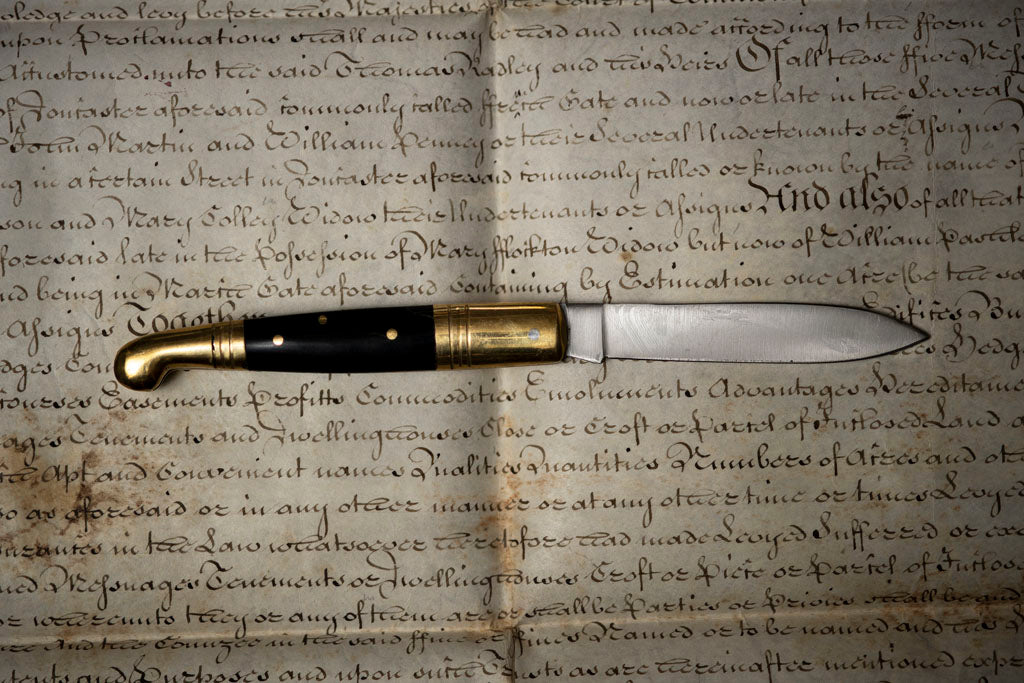 and levy before his Majesties Court of
upon Proclamations shall and may be had and made according to the fform of
Accustomed unto the said Thomas Radley and his Heirs Of all those ffive
of Doncaster aforesaid commonly called ffrench Gate and now or late in the several
John Martin and William Penney or their Several Undertenants or Assigns
in a certain Street in Doncaster aforesaid commonly called or known by the name of
son and Mary Colley Widow their Undertenants or Assigns And also of all that
foresaid late in the Possession of Mary Widow but now of William
nd being in Gate aforesaid Containing by Estimation one Acre (be the sa
Assigns Together Edifices Bu
dges Com
Courses Easements Profitts Commodities Emoluments Advantages Hereditame
ages Tenements and Dwellinghouses Close or Croft or Parcel of Inclosed Land
Apt and Convenient names Qualities Quantities Numbers of Acres and oth
so as aforesaid or in any other manner or at any other time or times Levyed
urances in the Law whatsoever heretofore had made Levyed Sufferred or exe
ned Messuages Tenements or Dwellinghouses Croft or Piece or Parcel of Inclose
or whereunto they or any of them are or shall be Parties or Privies shall be and
And the Conuzee in the said ffine or ffines Named or to be named and his
tents and Purposes and upon such Trusts as are hereinafter mentioned expre